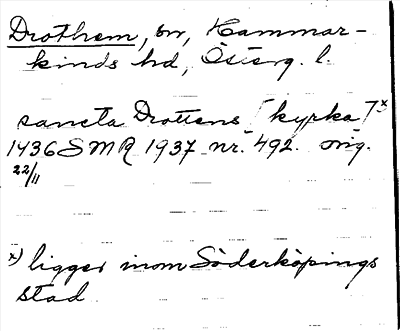 Drothem, sn, Hammar-
kinds hd, Österg. l.
sancta Drottens [kyrka]x
1436 SMR 1937 nr. 492. orig.
22/11
x) ligger inom Söderköpings
stad